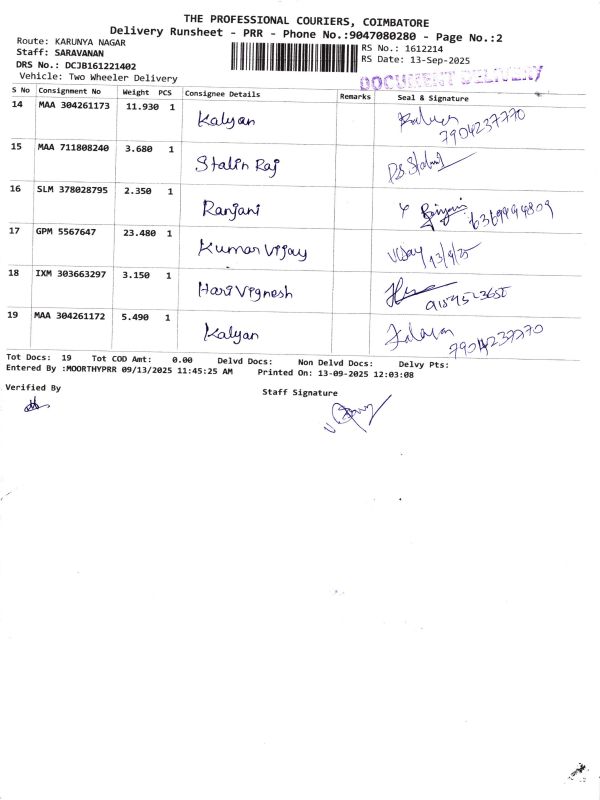 THE PROFESSIONAL COURIERS, COIMBATORE
Delivery Runsheet - PRR - Phone No.:9047080280 - Page No.:2
Route: KARUNYA NAGAR RS No.: 1612214
Staff: SARAVANAN RS Date: 13-Sep-2025
DRS No.: DCJB161221402 DOCUMENT DELIVERY
Vehicle: Two Wheeler Delivery
S No Consignment No Weight PCS Consignee Details Remarks Seal & Signature
14 MAA 304261173 11.930 1 Kalyan Kalyan
7904237770
15 MAA 711808240 3.680 1 Stalin Raj
16 SLM 378028795 2.350 1 Ranjani
17 GPM 5567647 23.480 1 Kumar Vijay Vijay 13/9/25
18 IXM 303663297 3.150 1 Hari Vignesh
19 MAA 304261172 5.490 1 Kalyan Kalyan
Tot Docs: 19 Tot COD Amt: 0.00 Delvd Docs: Non Delvd Docs: Delvy Pts:
Entered By :MOORTHYPRR 09/13/2025 11:45:25 AM Printed On: 13-09-2025 12:03:08
Verified By Staff Signature